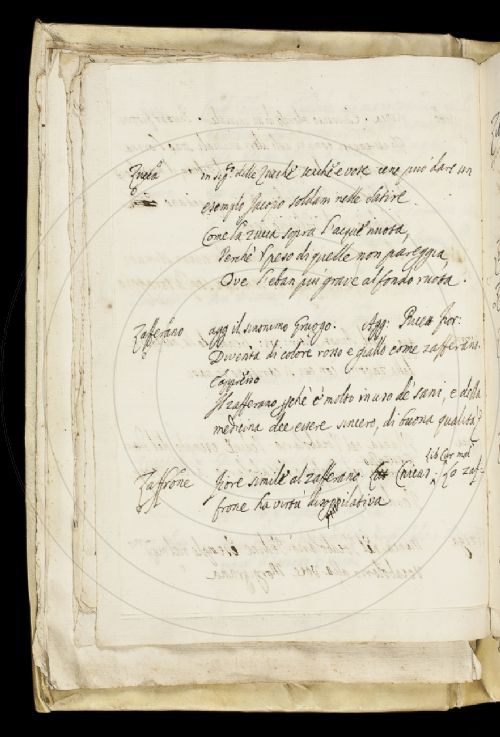 Zucca in sig.º delle Zucche secche e vote cene può dare un
esemplo Jacopo soldani nelle satire.
Come la zucca sopra l'acque nuota,
Perchè 'l peso di quelle non pareggia
Ove l'eban più grave al fondo ruota.
Zafferano agg il sinonimo Gruogo. Agg: fior:
Diventa di colore rosso e giallo come zafferano.
Il zafferano, perchè è molto in uso de' sani, e della
medicina dee essere sincero, di buona qualità
Zaffrone fiore simile al zafferano. Cnicus lib Cur mal. Lo zaf-
frone ha virtù disoppilativa